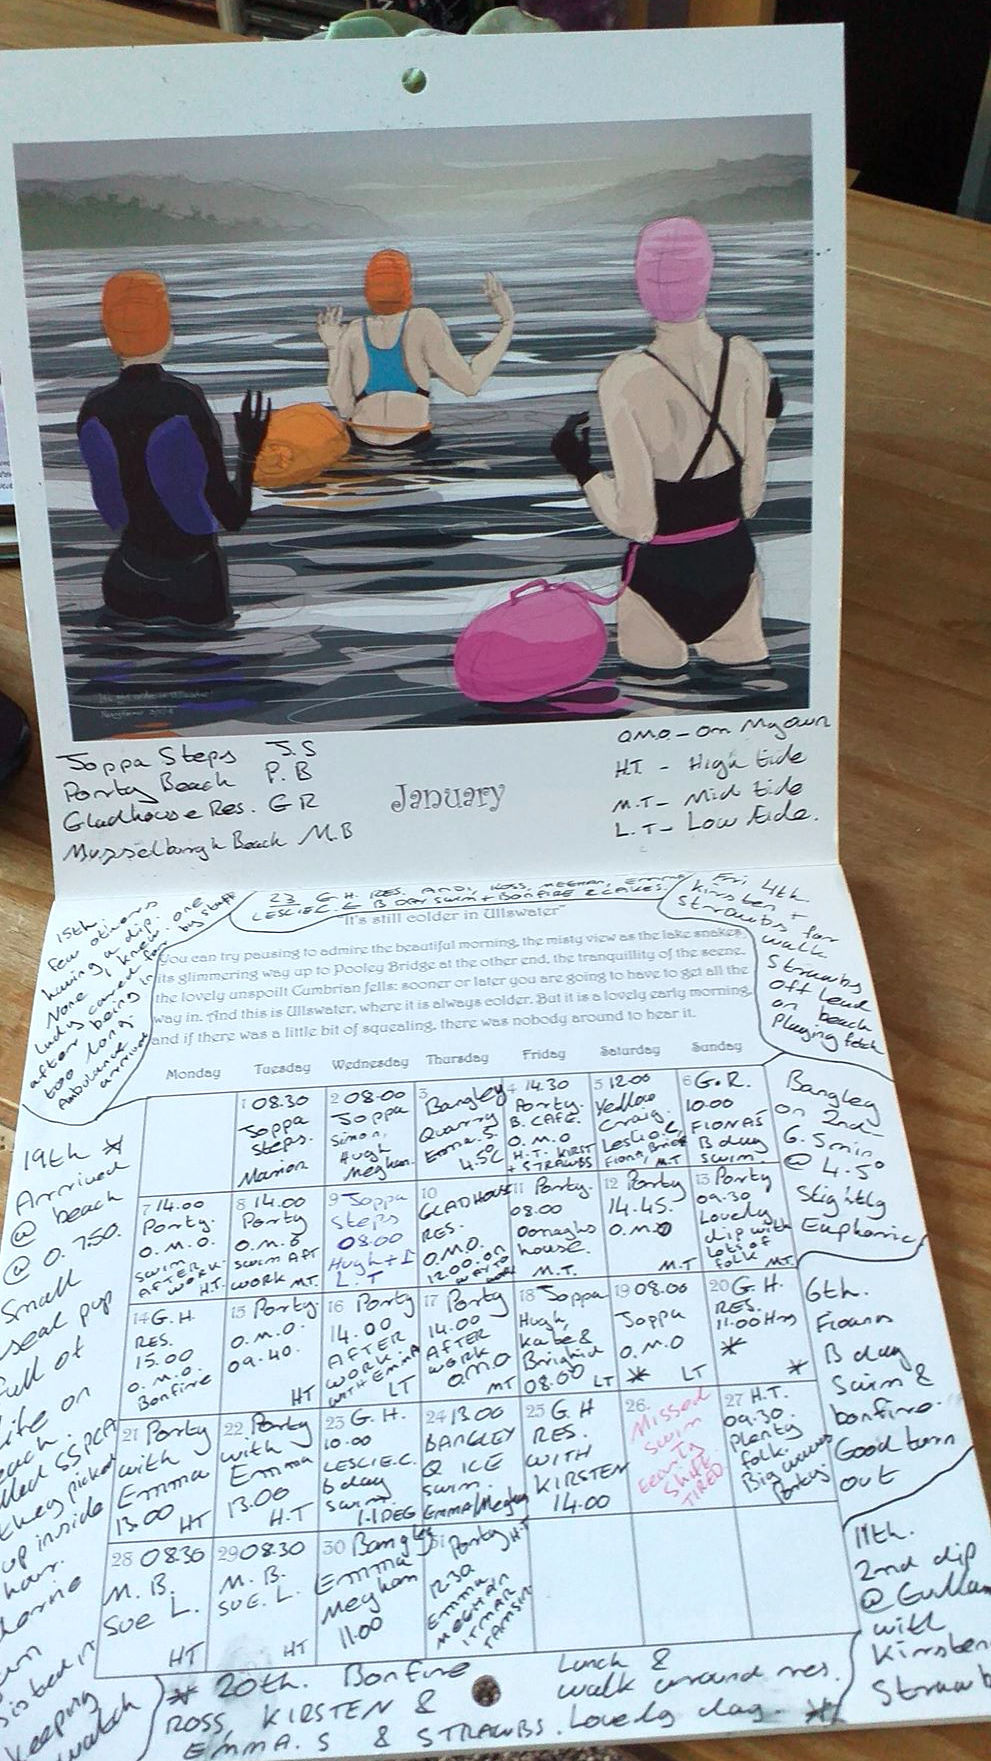 Joppa Steps J.S
Porty Beach P.B
Gladhouse Res. G R
Musselburgh Beach M.B
January
O.M.O. - On My own
H.T - High tide
M.T - Mid tide
L.T - Low tide.
23 G.H. RES. ANDI, ROSS, MEGHAN, EMMA
LESLIE.C. B DAY Swim + Bonfire & CAKES.
15th
Few others
having a dip.
None I knew. one
lady cared for by staff
after being in
too long.
Ambulance
arrived
Fri 4th.
Kirsten +
Strawbs for
walk
Strawbs
off lead
on beach
playing fetch
"It's still colder in Ullswater"
You can try pausing to admire the beautiful morning, the misty view as the lake snakes
its glimmering way up to Pooley Bridge at the other end, the tranquillity of the scene,
the lovely unspoilt Cumbrian fells: sooner or later you are going to have to get all the
way in. And this is Ullswater, where it is always colder. But it is a lovely early morning,
and if there was a little bit of squealing, there was nobody around to hear it.
Monday Tuesday Wednesday Thursday Friday Saturday Sunday
1 08.30
Joppa
Steps.
Marion
2 08.00
Joppa
Simon,
Hugh
Meghan.
3
Bangley
Quarry
Emma.S.
4.5C
4 14.30
Porty.
B. CAFE.
O.M.O
H.T. KIRST
+ STRAWBS
5 12.00
Yellow
Craig.
Leslie.C,
Fiona, M.T
6 G.R.
10.00
FIONAS
B day
Swim.
7 14.00
Porty.
O.M.O.
SWIM
AFTER
WORK.
H.T.
8 14.00
Porty
O.M.O
Swim AFT
WORK MT.
9 Joppa
Steps
08.00
Hugh + I
L.T
10
GLADHOUSE
RES.
O.M.O.
12.00. ON
WAY TO
WORK
11 Porty.
08.00
Oonaghs
house.
M.T.
12 Porty
14.45.
O.M.O
M.T
13 Porty
09.30
Lovely
dip with
lots of
folk M.T.
14 G.H.
RES.
15.00
O.M.O.
Bonfire
15 Porty.
O.M.O.
09.40.
HT
16 Porty
14.00
AFTER
WORK.
WITH EMMA
LT
17 Porty
14.00
AFTER
WORK
O.M.O
MT
18 Joppa
Hugh,
Kate &
Brighid
08.00 LT
19 08.00
Joppa
O.M.O
* LT
20 G.H.
RES.
11.00 Hrs
*
*
21 Porty
with
Emma
13.00
HT
22 Porty
with
Emma
13.00
H.T
23 G.H.
10.00
LESLIE.C.
B day
Swim
1.1 DEG
24 13.00
BANGLEY
Q ICE
Swim.
EMMA/Meghan
25 G.H
RES.
WITH
KIRSTEN
14.00
26.
Missed
Swim
Early
Shift
TIRED
27 H.T.
09.30.
Plenty
folk.
Big waves
Porty.
28 08.30
M.B.
Sue L.
HT
29 08.30
M.B.
SUE. L.
HT
30 Bangley
Emma
Meghan
11.00
31 Porty H.T
12.30
Emma
MEGHAN
ITMAR
TAMSIN
19th *
Arrived
@ beach
@ 0.750.
Small
seal pup
full of
life on
beach.
SSPCA
they picked
up inside
hour.
keeping
watch
Bangley
on 2nd
6.5min
@ 4.5°
Slightly
Euphoric
6th.
Fionas
B day
Swim &
bonfire.
Good turn
out
11th.
2nd dip
@ Gullane
with
Kirsten
Strawb
* 20th. Bonfire
ROSS, KIRSTEN &
EMMA. S & STRAWBS.
Lunch &
walk around res.
Lovely day. *